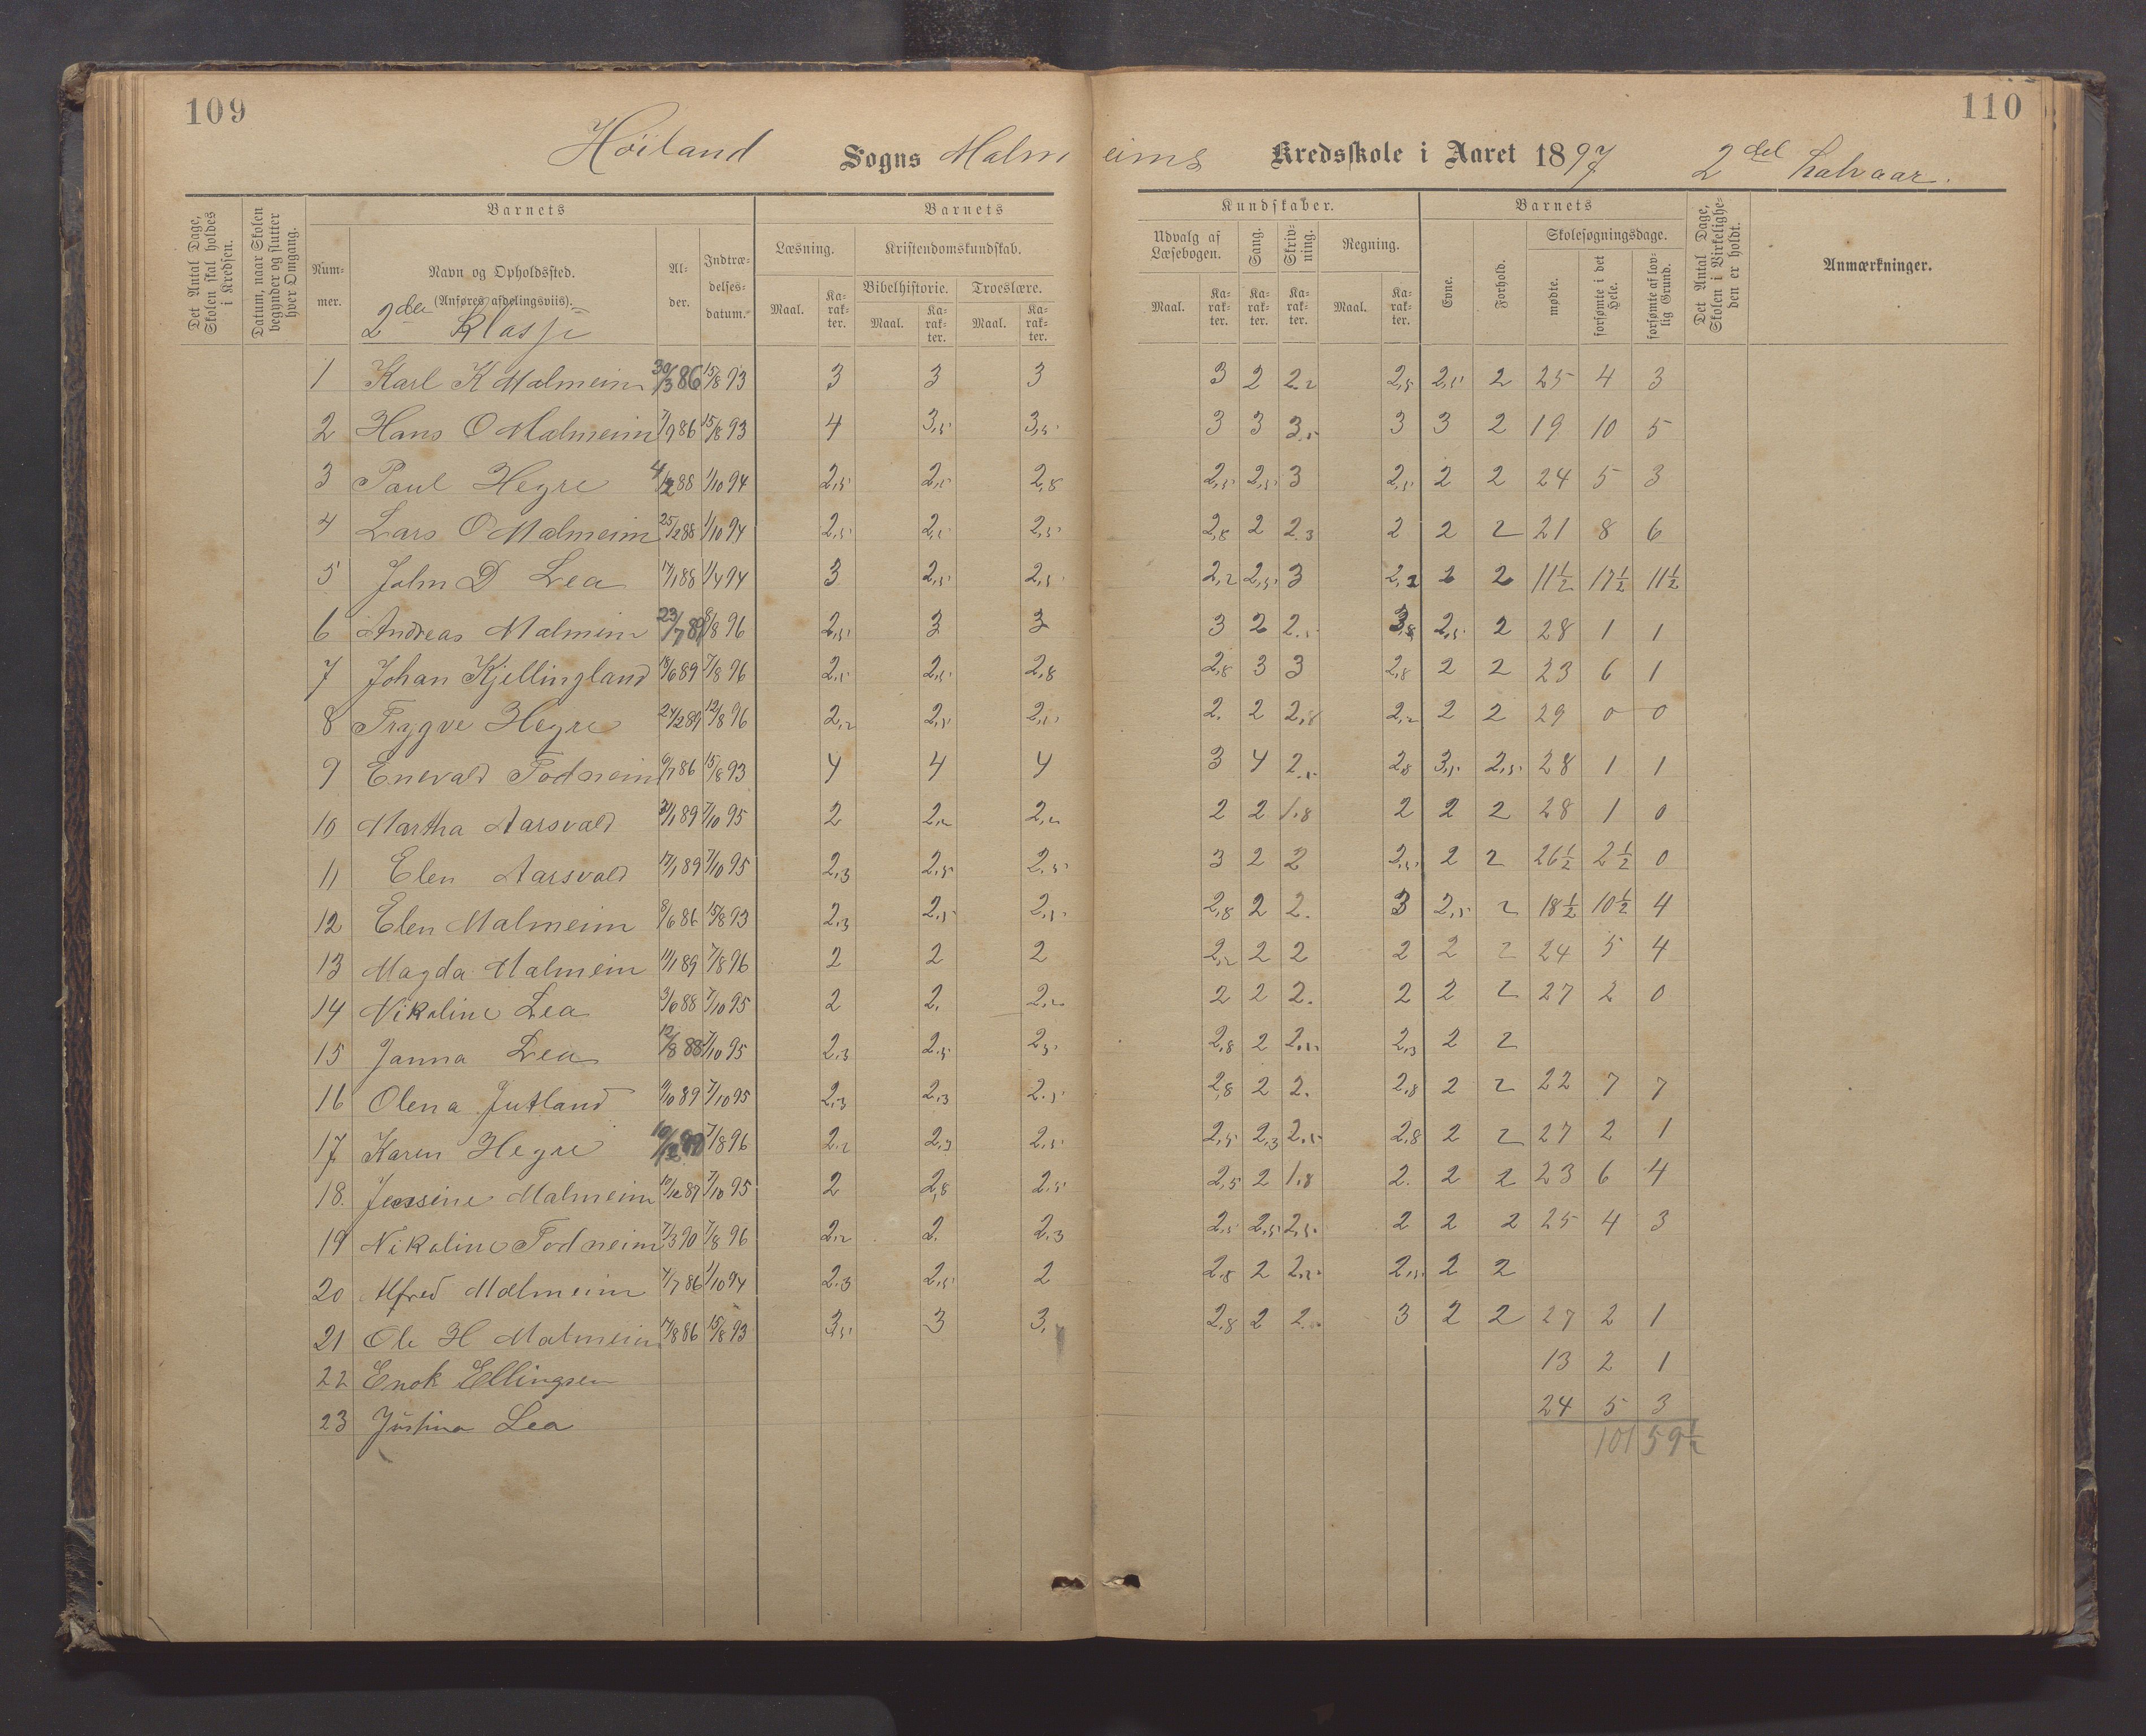 109
110
Höiland Sogns Malmeims Kredsskole i Aaret 1897 2del halvaar.
Det Antal Dage, Skolen skal holdes i Kredsen.
Datum, naar Skolen begynder og slutter hver Omgang.
Barnets
Barnets
Kundskaber.
Barnets
Det Antal Dage, Skolen i Virkelighe- den er holdt.
Anmærkninger.
Num- mer.
Navn og Opholdssted.
(Anføres afdelingsviis).
2den Klasse
Al- der.
Indtræ- delses- datum.
Læsning.
Kristendomskundskab.
Bibelhistorie.
Troeslære.
Udvalg af Læsebogen.
Sang.
Skriv- ning.
Regning.
Evne.
Forhold.
Skolesøgningsdage.
mødte.
forsømte i det Hele.
forsømte af lov- lig Grund.
Maal. Ka- rak- ter. Maal. Ka- rak- ter. Maal. Ka- rak- ter. Maal. Ka- rak- ter. Ka- rak- ter. Ka- rak- ter. Maal. Ka- rak- ter.
1 Karl K Malmeim 30/3 86 15/8 93 3 3 3 3 2 2.2 2,5 2,5 2 25 4 3
2 Hans O Malmeim 7/9 86 15/8 93 4 3,5 3,5 3 3 3.5 3 3 2 19 10 5
3 Paul Hegre 4/2 88 1/10 94 2,5 2,5 2,8 2,5 2,5 3 2,5 2 2 24 5 3
4 Lars O Malmeim 25/2 88 1/10 94 2,5 2,5 2,5 2,8 2 2.3 2 2 2 21 8 6
5 John D Lea 17/1 88 1/4 94 3 2,5 2,5 2,2 2,5 3 2,2 2 2 11½ 17½ 11½
6 Andreas Malmeim 23/7 89 8/8 96 2,5 3 3 3 2 2.5 3,8 2,5 2 28 1 1
7 Johan Kjellingland 18/6 89 7/8 96 2,5 2,5 2,8 2,8 3 3 2,8 2 2 23 6 1
8 Trygve Hegre 24/2 89 12/8 96 2,2 2,5 2,5 2. 2 2,8 2,2 2 2 29 0 0
9 Enevald Todneim 6/7 86 15/8 93 4 4 4 3 4 2.5 2,8 3,5 2,5 28 1 1
10 Martha Aarsvald 31/1 89 7/10 95 2 2,2 2,2 2 2 1.8 2 2 2 28 1 0
11 Elen Aarsvald 17/1 89 7/10 95 2,3 2,5 2,5 3 2 2 2,5 2 2 26½ 2½ 0
12 Elen Malmeim 8/6 86 15/8 93 2,3 2,5 2,5 2,8 2 2. 3 2,5 2 18½ 10½ 4
13 Magda Malmeim 11/1 89 7/8 96 2 2 2 2,2 2 2 2 2 2 24 5 4
14 Nikoline Lea 3/6 88 7/10 95 2 2. 2,2 2 2 2. 2 2 2 27 2 0
15 Janna Lea 12/8 88 7/10 95 2,3 2,5 2,5 2,8 2 2.5 2,3 2 2
16 Olena Jutland 9/10 89 7/10 95 2,3 2,3 2.5 2,8 2 2. 2,8 2 2 22 7 7
17 Karen Hegre 7/8 96 2,2 2,3 2,5 2,5 2,3 2.5 2,8 2 2 27 2 1
18. Jensine Malmeim 10/12 87 7/10 95 2 2,8 2.5 2,5 2 1.8 2. 2 2 23 6 4
19 Nikoline Todneim 7/3 90 7/8 96 2,2 2. 2,3 2,5 2,5 2,5. 2 2 2 25 4 3
20 Alfred Malmeim 4/7 86 1/10 94 2,3 2,5 2 2,8 2 2.2. 2,5. 2 2
21 Ole H Malmeim 17/8 86 15/8 93 3,5 3 3, 2,8 2 2. 3 2 2 27 2 1
22 Enok Ellingsen 13 2 1
23 Justina Lea 24 5 3
101 59½